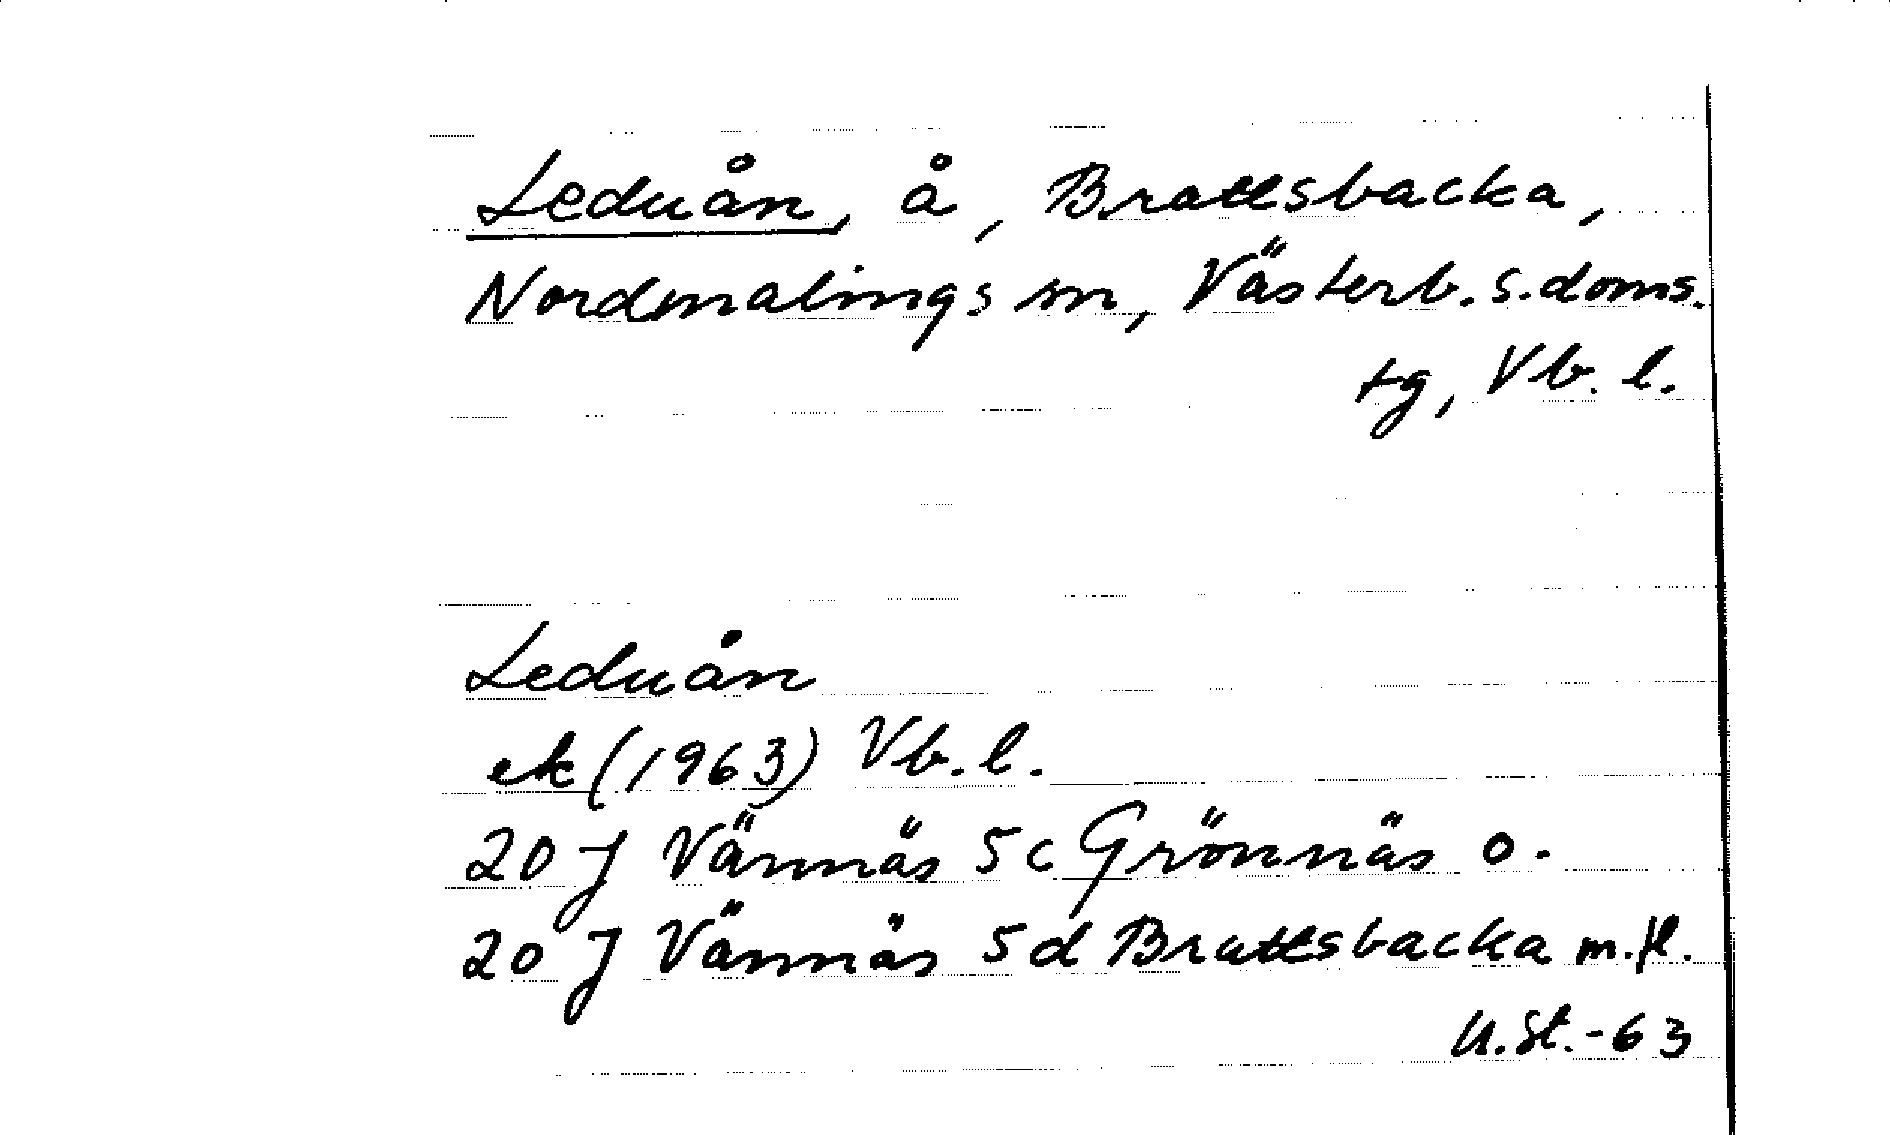 Leduån, å, Brattsbacka,
Nordmalings sn, Västerb. s. doms.
tg, Vb. l.
Leduån
ek (1963) Vb. l.
20 J Vännäs 5c Grönnäs o.
20 J Vännäs 5d Brattsbacka m.fl.
U.St.-63